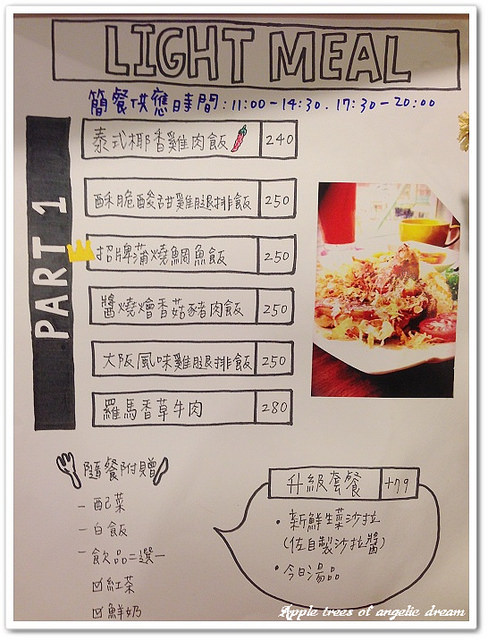 LIGHT MEAL
簡餐供應日時間:11:00-14:30.17:30-20:00
PART 1
泰式椰香雞肉飯 240
酥脆酸甜雞腿排飯 250
招牌蒲燒鯛魚飯 250
醬燒燴香菇豬肉飯 250
大阪風味雞腿排飯 250
羅馬香草牛肉 280
隨餐附贈
- 配菜
- 白飯
- 飲品二選一
☑紅茶
☑鮮奶
升級套餐 +79
·新鮮生菜沙拉
(佐自製沙拉醬)
·今日湯品
Apple trees of angelic dream